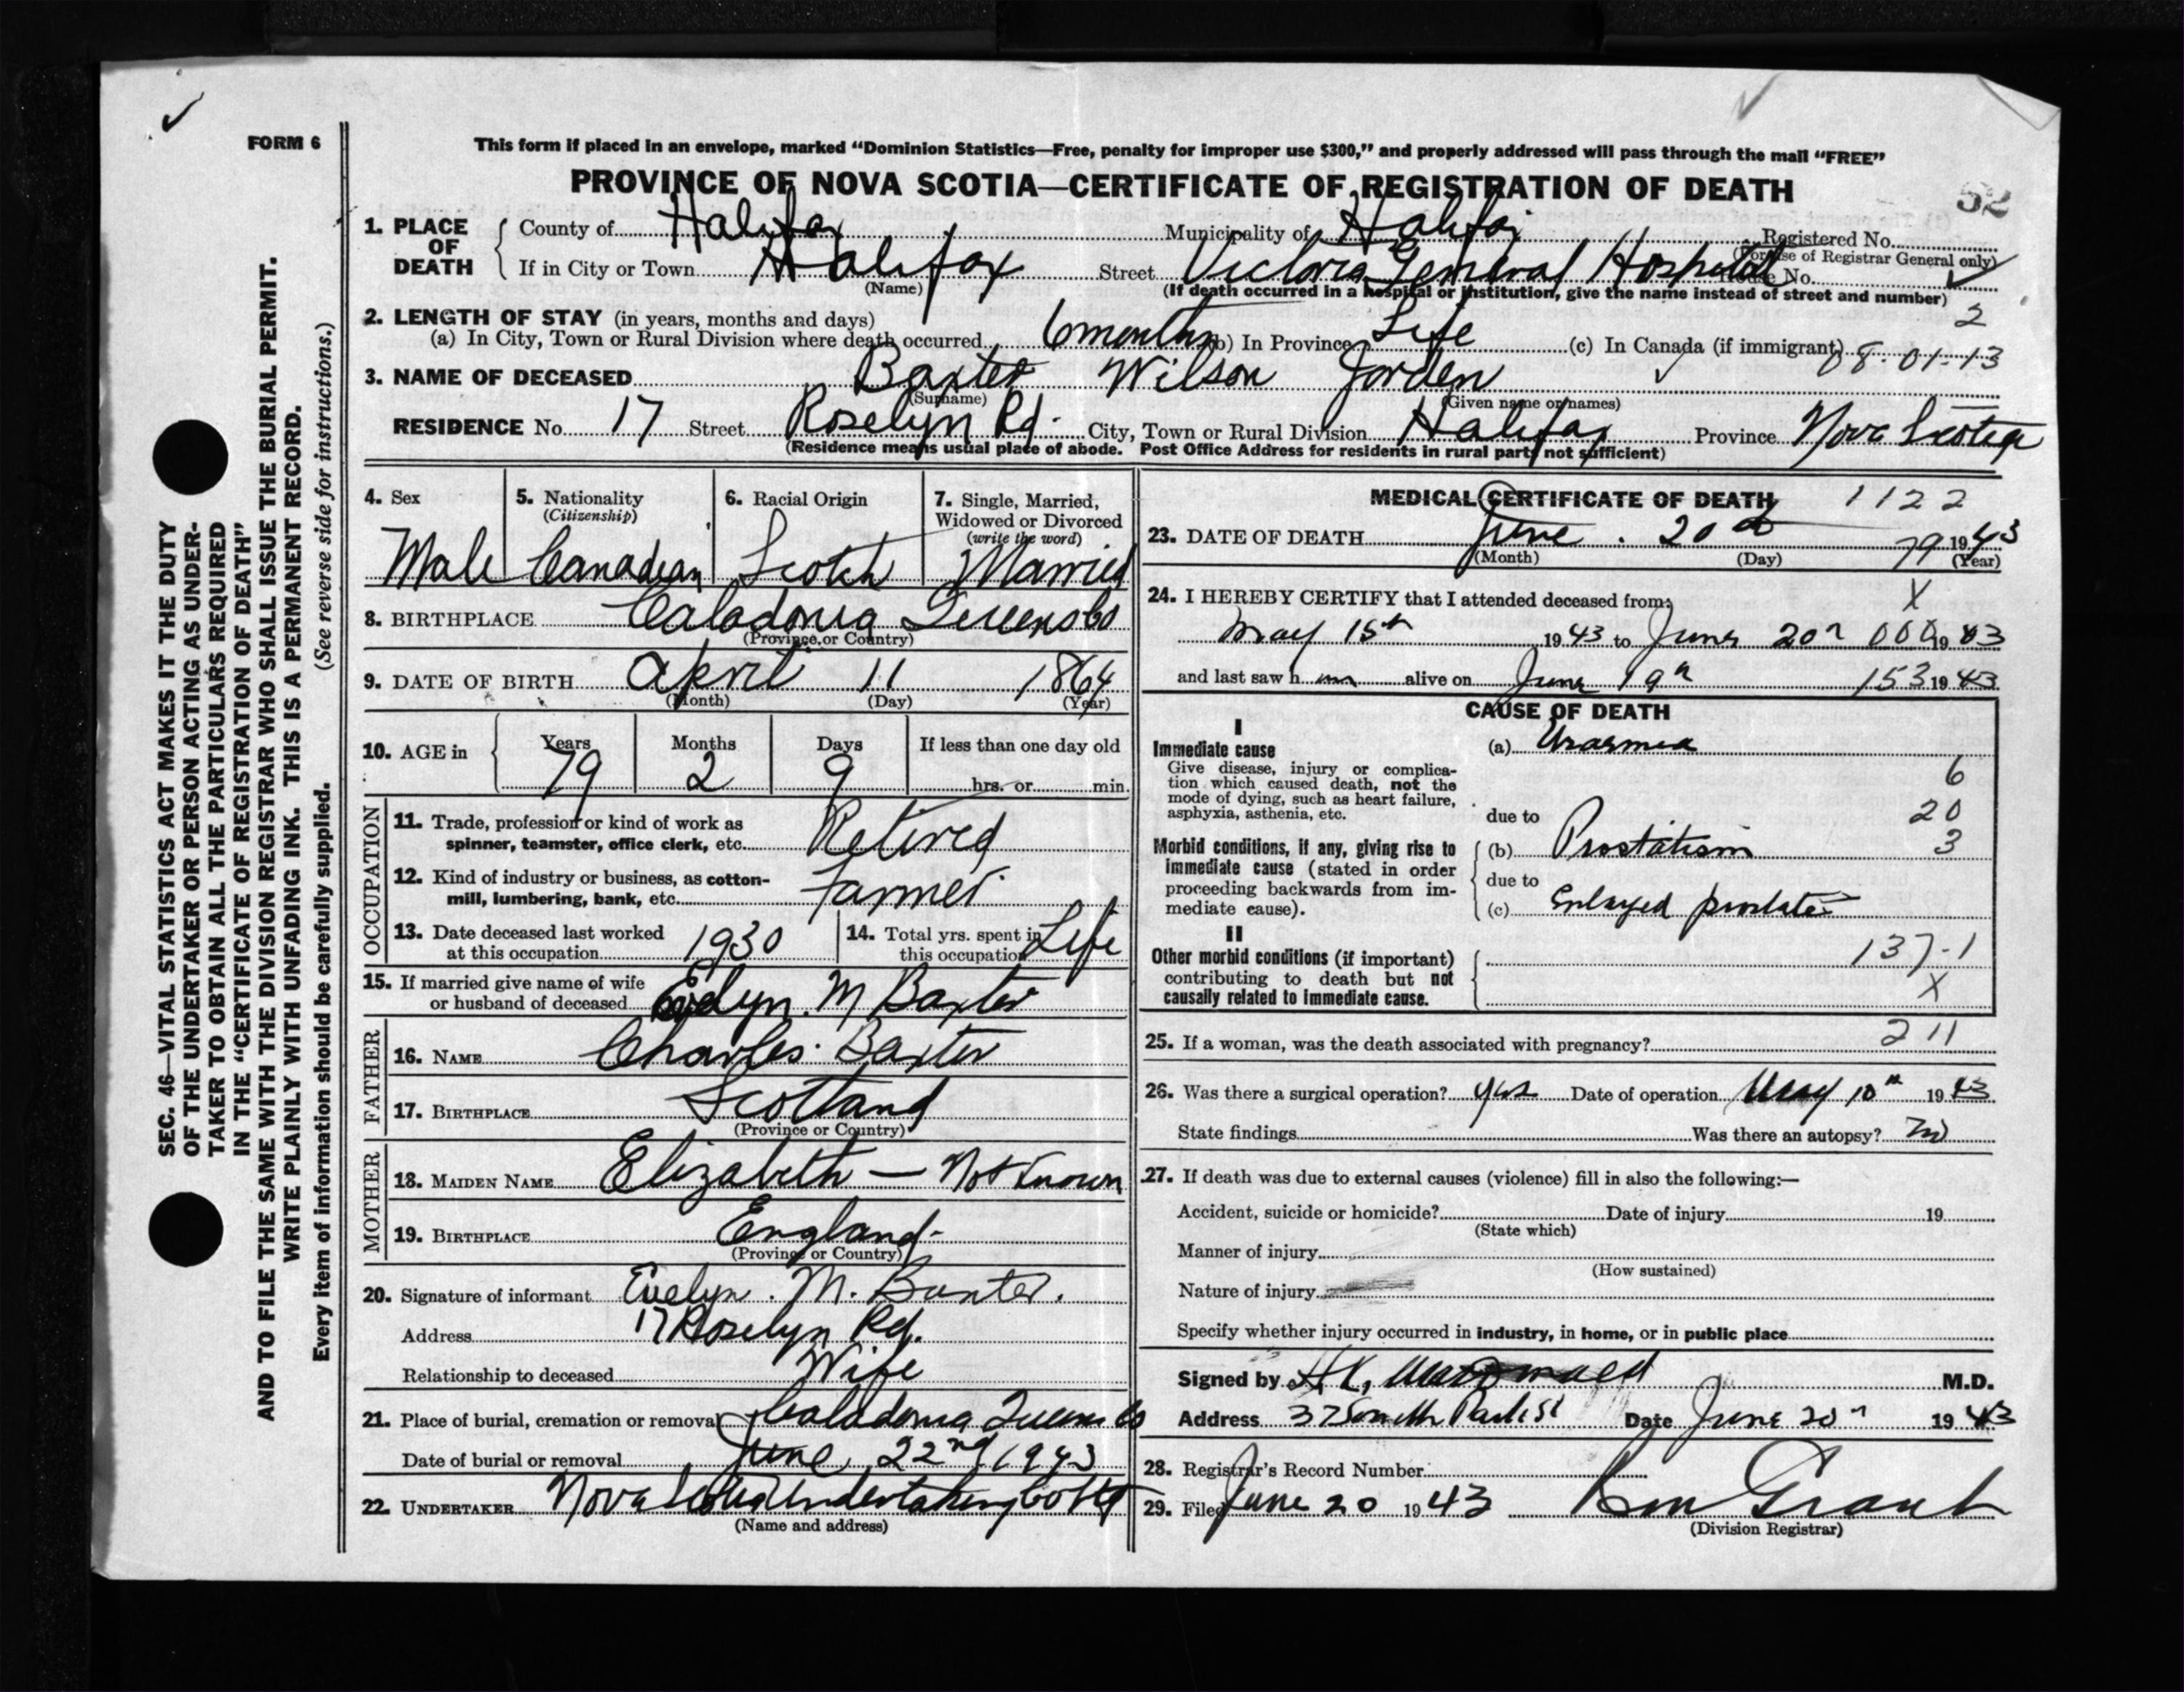 FORM 6
This form if placed in an envelope, marked “Dominion Statistics—Free, penalty for improper use $300,” and properly addressed will pass through the mail “FREE”
PROVINCE OF NOVA SCOTIA—CERTIFICATE OF REGISTRATION OF DEATH
52
1. PLACE OF DEATH
County of Halifax Municipality of Halifax Registered No.
(For use of Registrar General only)
If in City or Town Halifax Street Victoria General Hospital House No.
(Name) (If death occurred in a hospital or institution, give the name instead of street and number)
2
2. LENGTH OF STAY (in years, months and days)
(a) In City, Town or Rural Division where death occurred 6 months (b) In Province Life (c) In Canada (if immigrant) 08-01-13
3. NAME OF DECEASED Baxter Wilson Jorden
(Surname) (Given name or names)
RESIDENCE No. 17 Street Roselyn Rd. City, Town or Rural Division Halifax Province Nova Scotia
(Residence means usual place of abode. Post Office Address for residents in rural parts not sufficient)
4. Sex
Male
5. Nationality
(Citizenship)
Canadian
6. Racial Origin
Scotch
7. Single, Married,
Widowed or Divorced
(write the word)
Married
8. BIRTHPLACE Caladonia Queens Co
(Province or Country)
9. DATE OF BIRTH April 11 1864
(Month) (Day) (Year)
10. AGE in
Years Months Days If less than one day old
79 2 9 hrs. or min.
OCCUPATION
11. Trade, profession or kind of work as
spinner, teamster, office clerk, etc. Retired
12. Kind of industry or business, as cotton-
mill, lumbering, bank, etc. Farmer
13. Date deceased last worked
at this occupation 1930
14. Total yrs. spent in
this occupation Life
15. If married give name of wife
or husband of deceased Evelyn. M Baxter
FATHER
16. NAME Charles Baxter
17. BIRTHPLACE Scotland
(Province or Country)
MOTHER
18. MAIDEN NAME Elizabeth — Not Known
19. BIRTHPLACE England-
(Province or Country)
20. Signature of informant Evelyn. M. Baxter.
Address 17 Roselyn Rd.
Relationship to deceased Wife
21. Place of burial, cremation or removal Caladonia Queens Co
Date of burial or removal June 22nd 1943
22. UNDERTAKER Nova Scotia Undertaking Co Hfx
(Name and address)
MEDICAL CERTIFICATE OF DEATH 1122
23. DATE OF DEATH June. 20th 79 1943
(Month) (Day) (Year)
24. I HEREBY CERTIFY that I attended deceased from: X
May 15th 1943 to June 20th 000 1943
and last saw him alive on June 19th 153 1943
CAUSE OF DEATH
I
Immediate cause
Give disease, injury or complica-
tion which caused death, not the
mode of dying, such as heart failure,
asphyxia, asthenia, etc.
(a) Uraemia
6
20
due to
Morbid conditions, if any, giving rise to
immediate cause (stated in order
proceeding backwards from im-
mediate cause).
(b) Prostatism 3
due to
(c) Enlarged prostate
II
Other morbid conditions (if important)
contributing to death but not
causally related to immediate cause.
137-1
X
25. If a woman, was the death associated with pregnancy? 211
26. Was there a surgical operation? yes Date of operation May 10th 1943
State findings Was there an autopsy? no
27. If death was due to external causes (violence) fill in also the following:—
Accident, suicide or homicide? Date of injury 19
(State which)
Manner of injury
(How sustained)
Nature of injury
Specify whether injury occurred in industry, in home, or in public place
Signed by H.K. MacDonald M.D.
Address 37 South Park St Date June 20th 1943
28. Registrar's Record Number
29. Filed June 20 1943 Grant
(Division Registrar)
SEC. 46—VITAL STATISTICS ACT MAKES IT THE DUTY
OF THE UNDERTAKER OR PERSON ACTING AS UNDER-
TAKER TO OBTAIN ALL THE PARTICULARS REQUIRED
IN THE “CERTIFICATE OF REGISTRATION OF DEATH”
AND TO FILE THE SAME WITH THE DIVISION REGISTRAR WHO SHALL ISSUE THE BURIAL PERMIT.
WRITE PLAINLY WITH UNFADING INK. THIS IS A PERMANENT RECORD.
Every item of information should be carefully supplied. (See reverse side for instructions.)